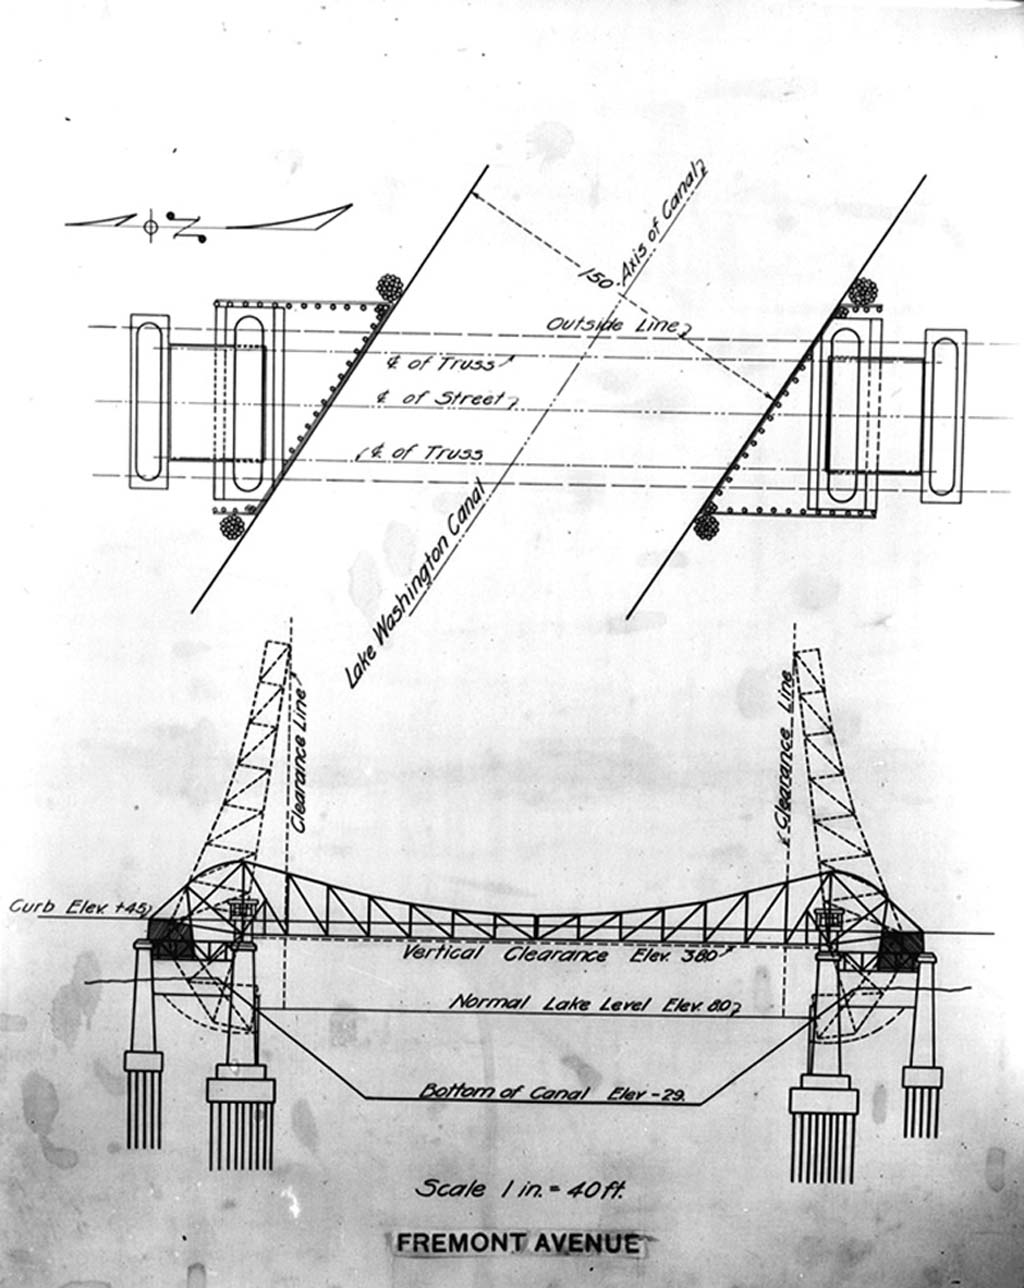 Axis of Canal
150
Outside Line
℄ of Truss
℄ of Street
℄ of Truss
Lake Washington Canal
Clearance Line
Clearance Line
Curb Elev. +45
Vertical Clearance Elev. 38.0
Normal Lake Level Elev. 8.0
Bottom of Canal Elev -29.
Scale 1 in. = 40 ft.
FREMONT AVENUE